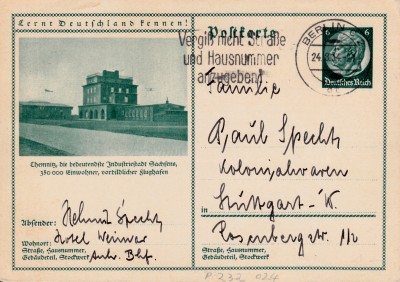 Lernt Deutschland kennen!
Chemnitz, die bedeutendste Industriestadt Sachsens,
380 000 Einwohner, vorbildlicher Flughafen
Absender: Helmut Specht
Wohnort: Hotel Weimar
Straße, Hausnummer,
Gebäudeteil, Stockwerk
Anh. Bhf.
Postkarte
Vergiß nicht Straße
und Hausnummer
anzugeben!
BERLIN
6 6
Deutsches Reich
Familie
Paul Specht
Kolonialwaren
in Stuttgart-W.
Rosenbergstr.
Straße, Hausnummer,
Gebäudeteil, Stockwerk
P 232 024